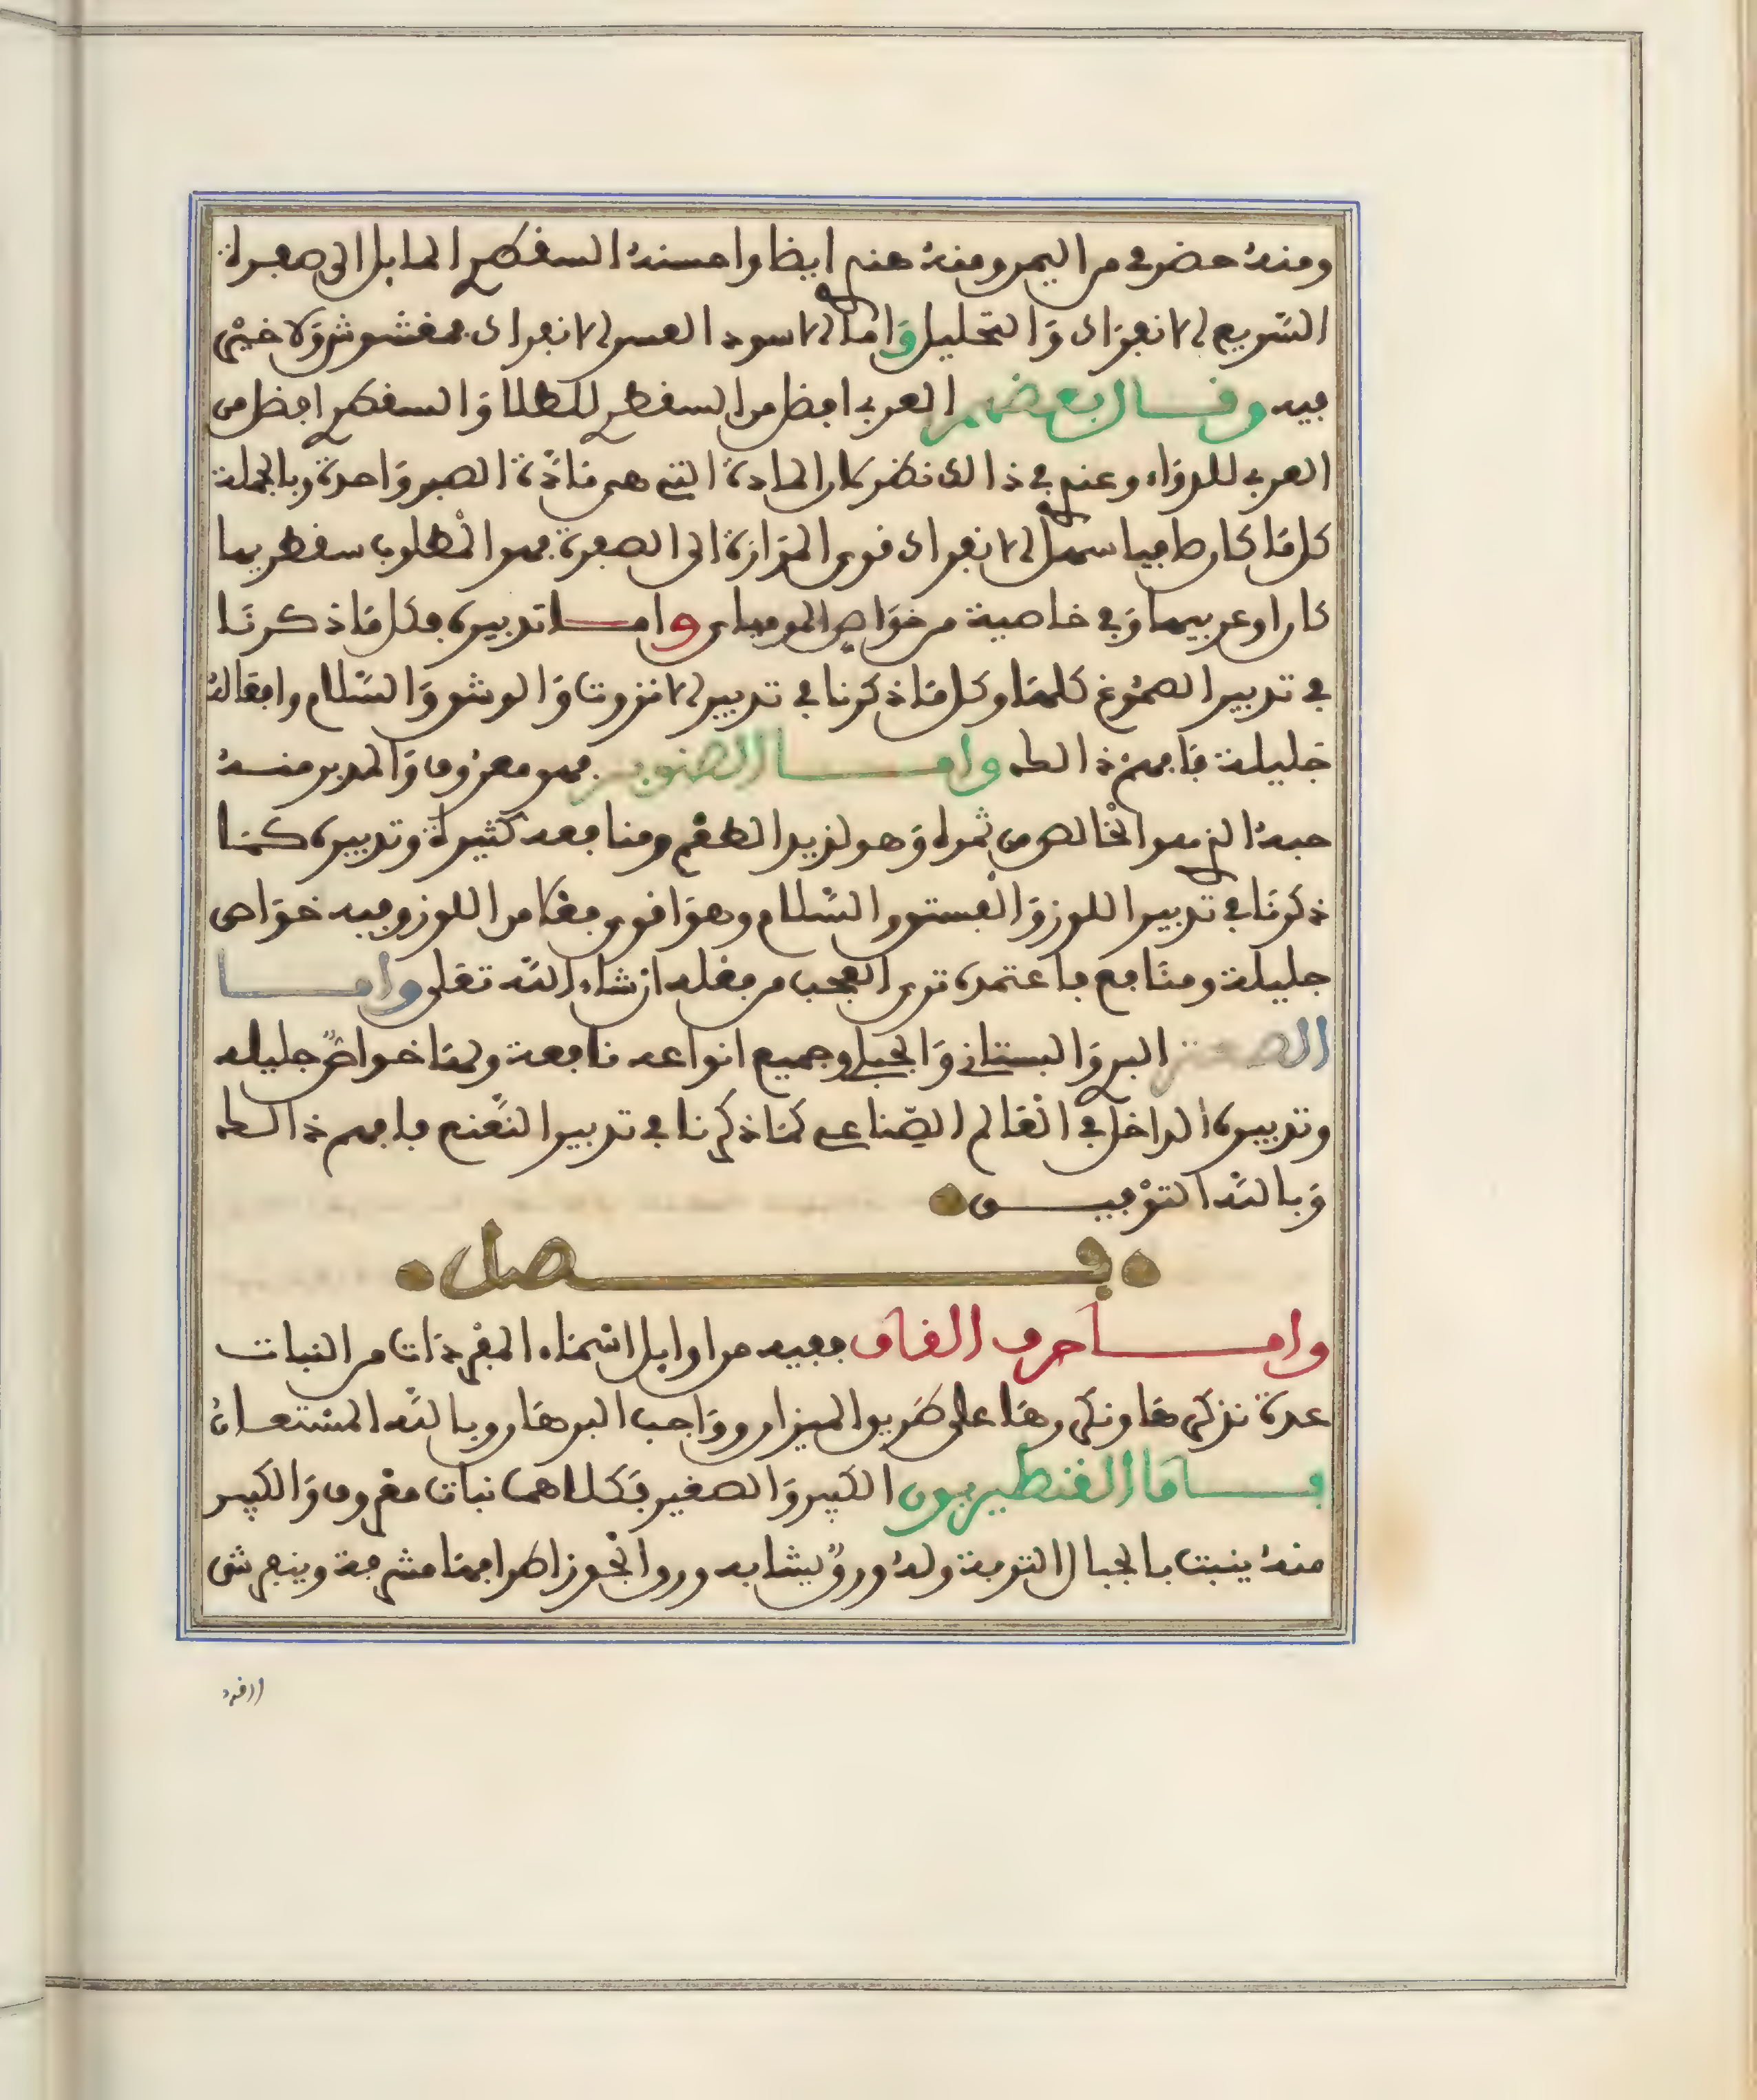 ومنه حضرمي من اليمن ومنه هندي ايضا واحسنه السقطري المايل الى صفرة
السّريع الانفراك وَالتحليل وَاما الاسود العسر الانفراك فمغشوش وَلا خير
فيه وقال بعضهم العربي افضل من السقطري للطلا وَالسقطري افضل من
العربي للدوَاء وعندي في ذالك نظر كان المادة التي هي مَادّة الصبر وَاحدة وبالجملة
كل مَا كان صافيا سهل الانفراك قوي المرَارة الى الصفرة فهو المطلوب سقطريا
كان او عربيا وَفيه خاصية من خوَاص الموميای وامـا تدبيره فكل مَا ذكرنَا
في تدبير الصمُوغ كلهَا وكل مَا ذكرنا في تدبير الانزروت وَالوشق وَالسّلام وافعاله
جَليلة فَافهم ذالك وامـا الصنوبر فهو معرُوف وَالمدبر منـه
حبه الذي هو الخالص من ثمره وَهو لذيذ الطعْم ومنافعه كثيرة وتدبيره كمَا
ذكرنَا في تدبير اللوز وَالفستق والسّلام وهوَ اقوى فعلا من اللوز وفيه خوَاص
جليلة ومنَافع فاعتمده ترى العجب من فعله ان شاء الله تعَلى وامـا
الصعتر البري وَالبستاني وَالجبلي وجميع انواعه نافعة ولهَا خواصٌ جليله
وتدبيره الداخل في العَالم الصّناعي كمَا ذكرنا في تدبير النعْنع فافهم ذالك
وَبالله التوْفيـق
فـصل
وامـا حرف القاف ففيه من اوايل اسْمَاء المفْردَات من النبات
عدة نذكرهَا ونكررهَا على طَريق الميزان ووَاجب البرهَان وبالله المسْتعـان
فـامَا القنطريون الكبير وَالصغير فَكلاهما نبات معْروف وَالكبير
منه ينبت بالجبال التربة وله ورقٌ يشابه ورق الجْوز اطرافهَا مشرفة وينفرش